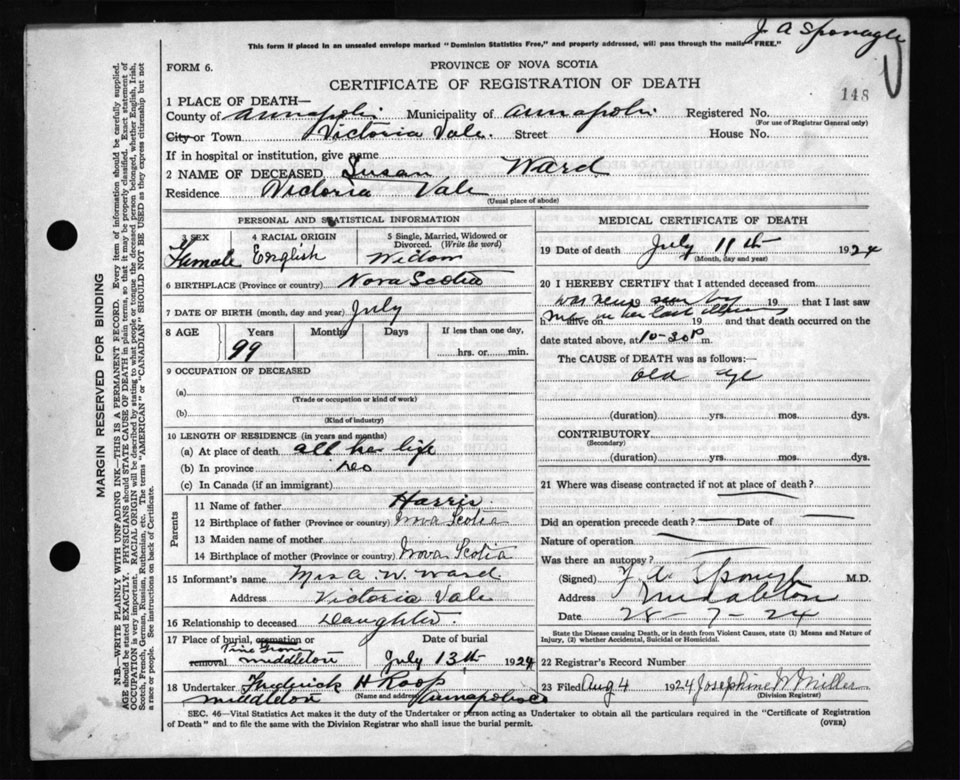 J. A Sponagle
This form if placed in an unsealed envelope marked "Dominion Statistics Free," and properly addressed, will pass through the mails "FREE."
FORM 6.
PROVINCE OF NOVA SCOTIA
CERTIFICATE OF REGISTRATION OF DEATH
148
1 PLACE OF DEATH—
County of Annapolis Municipality of Annapolis Registered No.
(For use of Registrar General only)
City or Town Victoria Vale Street House No.
If in hospital or institution, give name
2 NAME OF DECEASED Susan Ward
Residence Victoria Vale
(Usual place of abode)
PERSONAL AND STATISTICAL INFORMATION
3 SEX 4 RACIAL ORIGIN 5 Single, Married, Widowed or Divorced. (Write the word)
Female English Widow
6 BIRTHPLACE (Province or country) Nova Scotia
7 DATE OF BIRTH (month, day and year) July
8 AGE Years Months Days If less than one day,
99 hrs. or min.
9 OCCUPATION OF DECEASED
(a)
(Trade or occupation or kind of work)
(b)
(Kind of industry)
10 LENGTH OF RESIDENCE (in years and months)
(a) At place of death all her life
(b) In province do
(c) In Canada (if an immigrant)
Parents
11 Name of father Harris
12 Birthplace of father (Province or country) Nova Scotia
13 Maiden name of mother
14 Birthplace of mother (Province or country) Nova Scotia
15 Informant's name Mrs A. W. Ward
Address Victoria Vale
16 Relationship to deceased Daughter
17 Place of burial, cremation or removal Date of burial
Pine Grove Middleton July 13th 1924
18 Undertaker Frederick H Roop
(Name and address)
Middleton Annapolis Co
MEDICAL CERTIFICATE OF DEATH
19 Date of death July 11th 1924
(Month, day and year)
20 I HEREBY CERTIFY that I attended deceased from
was never seen by 19 that I last saw
h alive on 19 and that death occurred on
me in her last illness
date stated above, at 10-30 P m.
The CAUSE of DEATH was as follows:—
old age
(duration) yrs. mos. dys.
CONTRIBUTORY
(Secondary)
(duration) yrs. mos. dys.
21 Where was disease contracted if not at place of death?
Did an operation precede death? Date of
Nature of operation
Was there an autopsy?
(Signed) M.D.
Address Middleton
Date 28-7-24
State the Disease causing Death, or in death from Violent Causes, state (1) Means and Nature of
Injury, (2) whether Accidental, Suicidal or Homicidal.
22 Registrar's Record Number
23 Filed Aug 4 1924 Josephine W Miller
(Division Registrar)
SEC. 46—Vital Statistics Act makes it the duty of the Undertaker or person acting as Undertaker to obtain all the particulars required in the "Certificate of Registration
of Death" and to file the same with the Division Registrar who shall issue the burial permit.
(OVER)
MARGIN RESERVED FOR BINDING
N.B.—WRITE PLAINLY WITH UNFADING INK—THIS IS A PERMANENT RECORD. Every item of information should be carefully supplied.
AGE should be stated EXACTLY. PHYSICIANS should STATE CAUSE OF DEATH in plain terms, so that it may be properly classified. Exact statement of
OCCUPATION is very important. RACIAL ORIGIN will be described by stating to what people or tongue the deceased person belonged, whether English, Irish,
Scotch, French, German, Russian, Ruthenian, etc. The terms "AMERICAN" or "CANADIAN" SHOULD NOT BE USED as they express citizenship but not
a race or people. See instructions on back of Certificate.